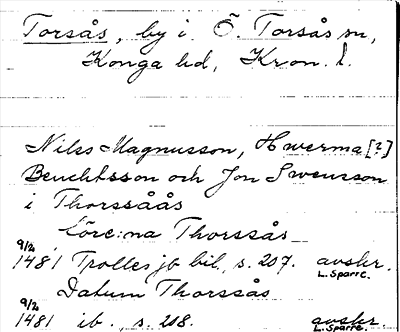 Torsås, by i Ö. Torsås sn,
Konga hd, Kron. l.
Nils Magnusson, Hwerma [?]
Benchtsson och Jon Swensson
i Thorssåås
Löre:na Thorssås
9/2 1481 Trolles jb bil., s. 207. avskr. L. Sparre.
Datum Thorssås
9/2 1481 ib., s. 208. avskr. L. Sparre.